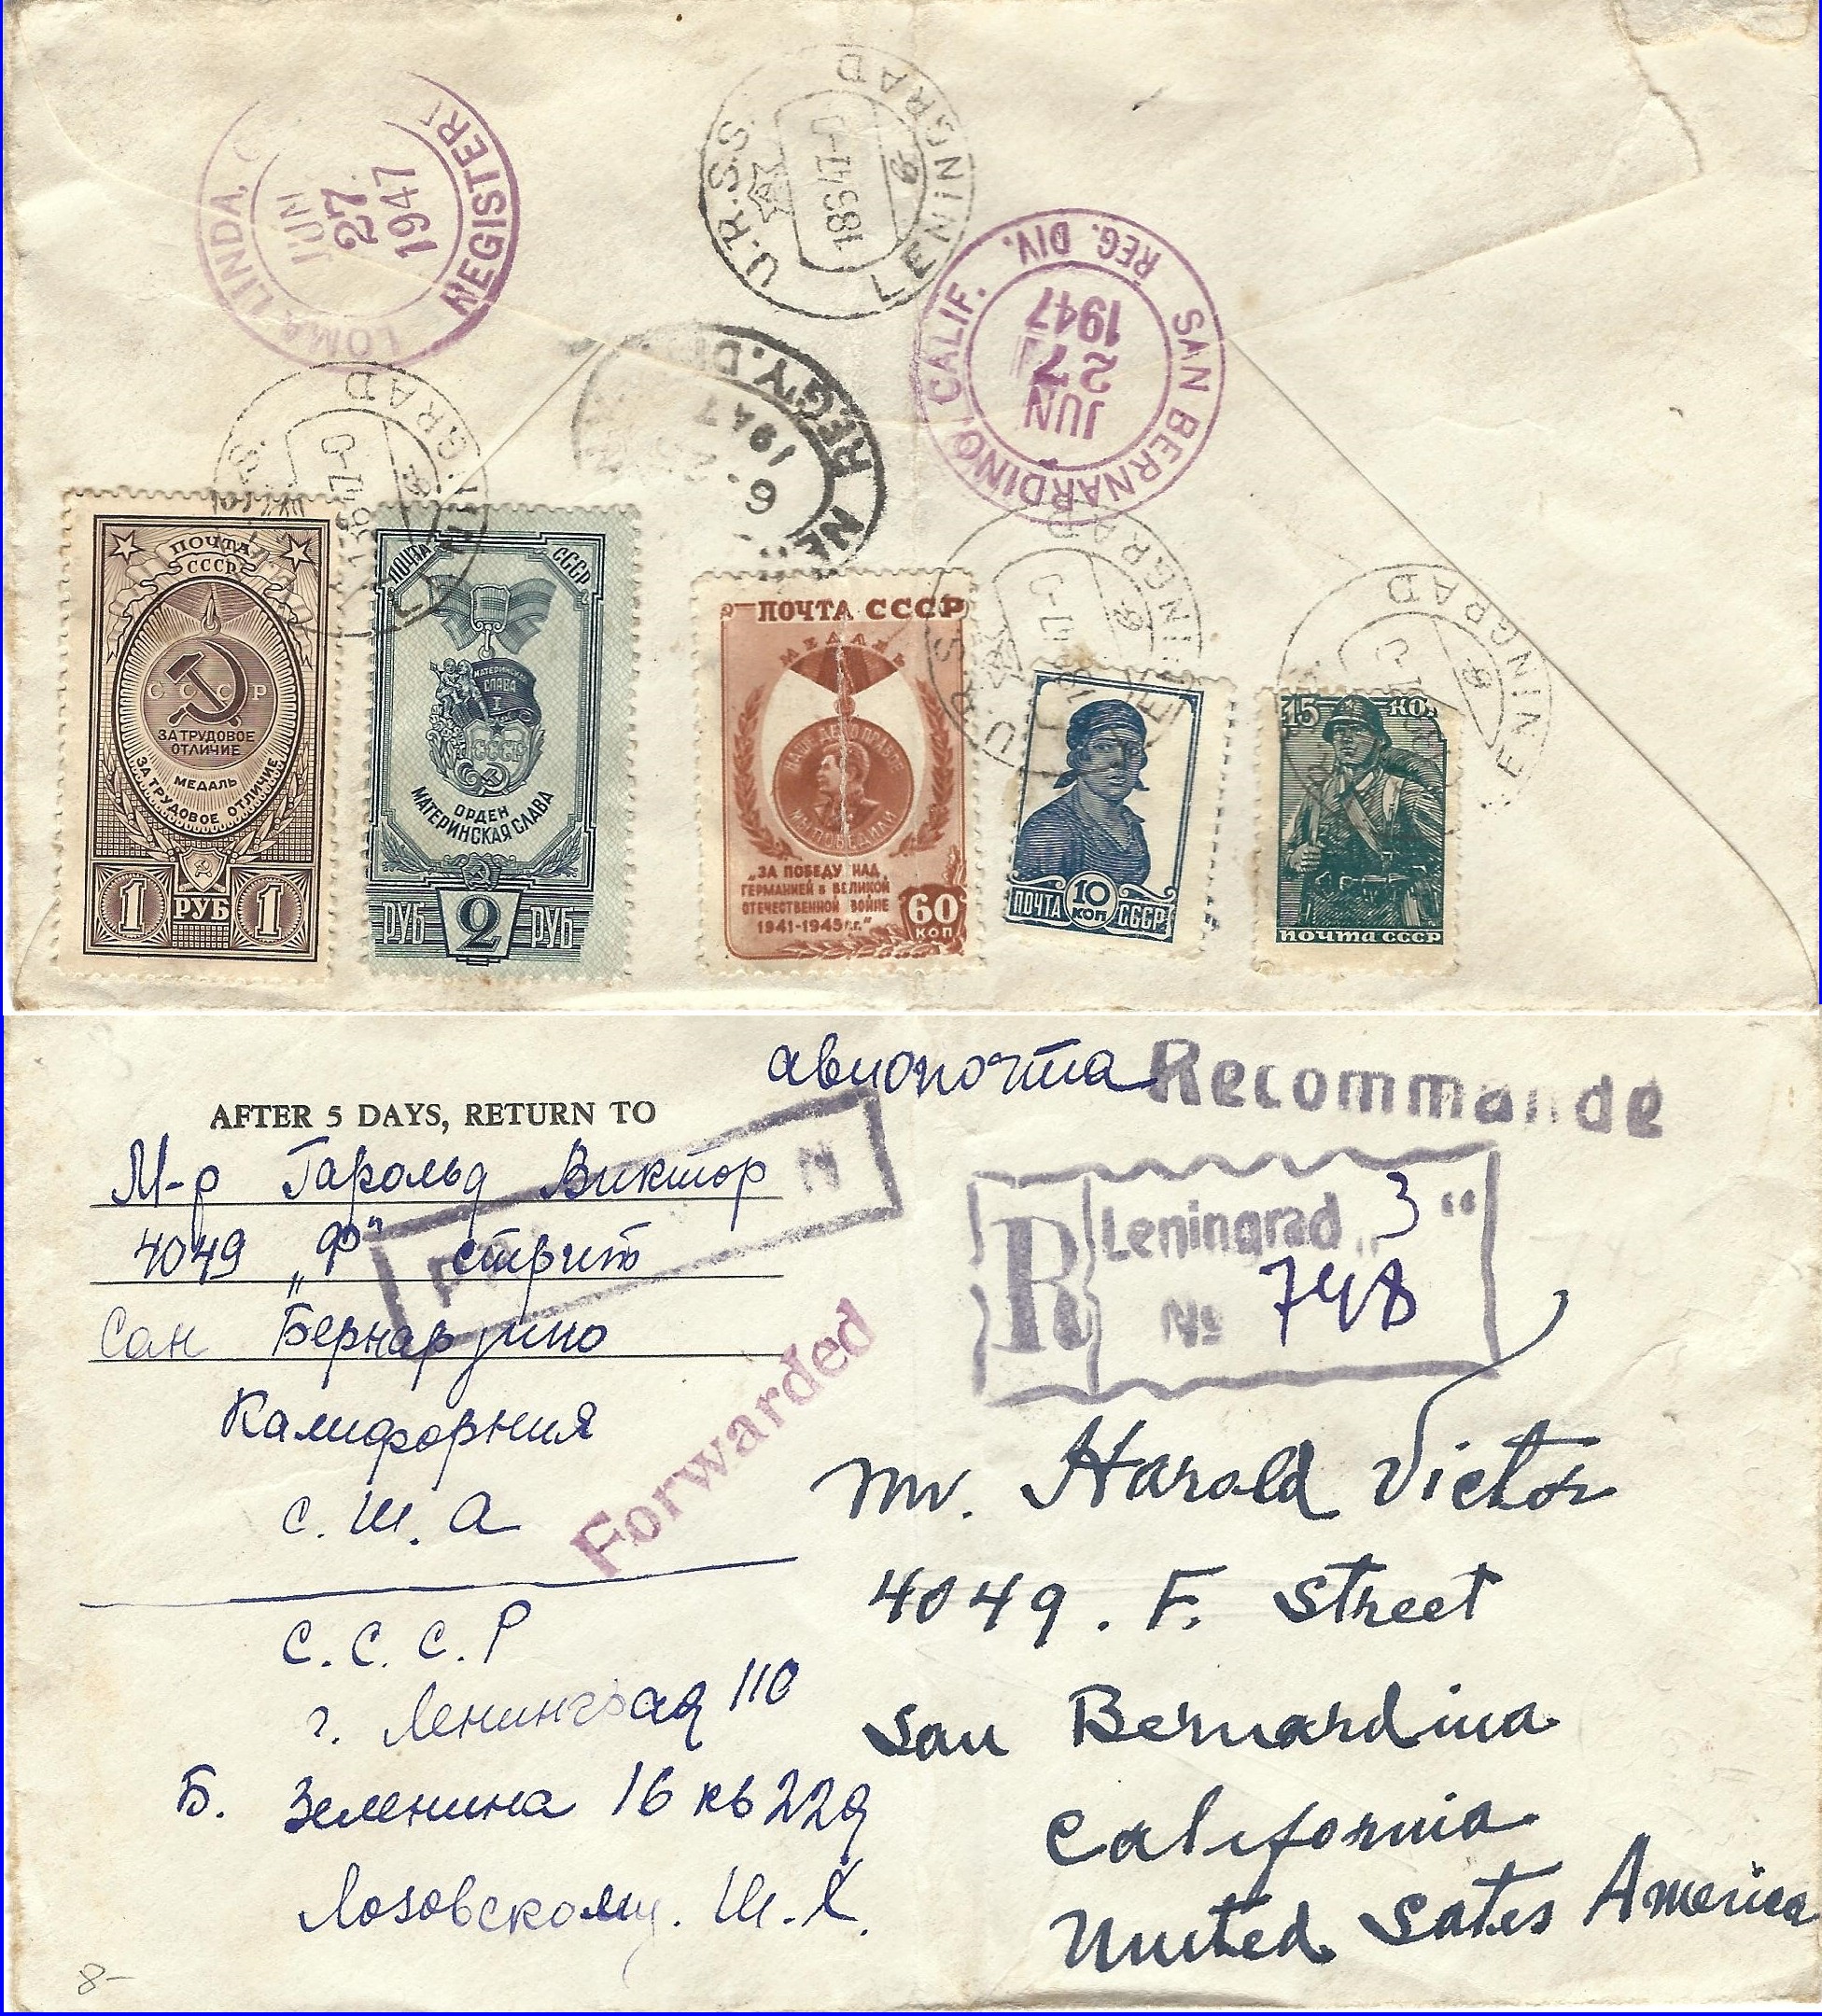 LOMA LINDA,
JUN
27
1947
REGISTER
U.R.S.S.
LENINGRAD
18547-0
SAN BERNARDINO, CALIF.
REG. DIV.
JUN
27
1947
REGY. DIV.
6.
1947
LENINGRAD
U.R.S.
LENINGRAD
LENINGRAD
ПОЧТА
СССР
СССР
ЗА ТРУДОВОЕ
ОТЛИЧИЕ
МЕДАЛЬ
ЗА ТРУДОВОЕ ОТЛИЧИЕ
1 РУБ 1
ПОЧТА СССР
МАТЕРИНСКАЯ
СЛАВА
I
СССР
ОРДЕН
МАТЕРИНСКАЯ СЛАВА
РУБ 2 РУБ
ПОЧТА СССР
МЕДАЛЬ
НАШЕ ДЕЛО ПРАВОЕ
МЫ ПОБЕДИЛИ
„ЗА ПОБЕДУ НАД
ГЕРМАНИЕЙ в ВЕЛИКОЙ
ОТЕЧЕСТВЕННОЙ ВОЙНЕ
1941-1945гг."
60
КОП
ПОЧТА 10 КОП СССР
15 КОП
ПОЧТА СССР
авиопочта Recommande
AFTER 5 DAYS, RETURN TO
М-р Гарольд Виктор
4049 „Ф" стрит
Сан Бернардино
Калифорния
С.Ш.А
Forwarded
R Leningrad „3"
№ 748
Mr. Harold Victor
4049. F. Street
San Bernardina
California
United Sates America
С.С.С.Р
г. Ленинград 110
Б. Зеленина 16 кв 22д
Лозовскому. Ш.Х.
8-